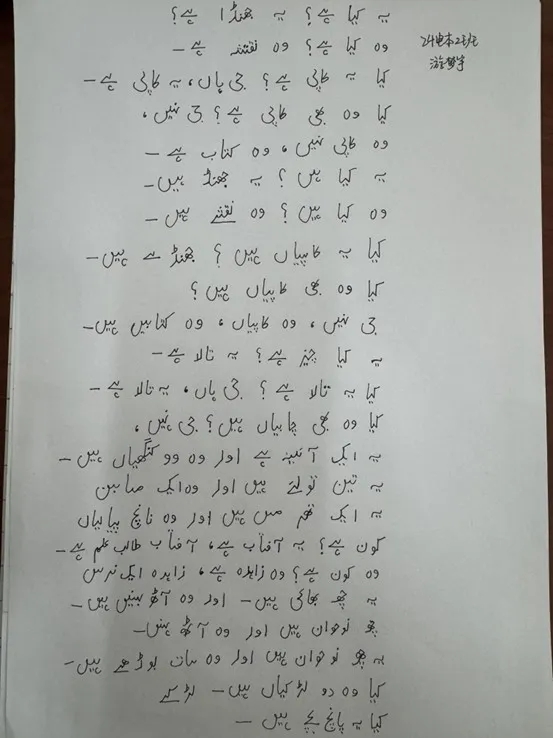 یہ کیا ہے؟ یہ جھنڈا ہے؟
وہ کیا ہے؟ وہ نقشہ ہے۔
کیا یہ کاپی ہے؟ جی ہاں، یہ کاپی ہے۔
کیا وہ بھی کاپی ہے؟ جی نہیں،
وہ کاپی نہیں، وہ کتاب ہے۔
یہ کیا ہیں؟ یہ جھنڈ ہیں۔
وہ کیا ہیں؟ وہ نقشے ہیں۔
کیا یہ کاپیاں ہیں؟ جھنڈے ہیں۔
کیا وہ بھی کاپیاں ہیں؟
جی نہیں، وہ کاپیاں، وہ کتابیں ہیں۔
یہ کیا چیز ہے؟ یہ تالا ہے۔
کیا یہ تالا ہے؟ جی ہاں، یہ تالا ہے۔
کیا وہ بھی چابیاں ہیں؟ جی نہیں،
یہ ایک آئینہ ہے اور وہ دو کنگھیاں ہیں۔
یہ تین تولئے ہیں اور وہ ایک صابن
یہ ایک ہیں اور وہ پانچ پیالیاں
کون ہے؟ یہ آفتاب ہے، آفتاب طالب علم ہے۔
وہ کون ہے؟ وہ زاہدہ ہے، زاہدہ ایک نرس
یہ چھ بھائی ہیں۔ اور وہ آٹھ بہنیں ہیں۔
چھ نوجوان ہیں اور وہ آٹھ
یہ چھ نوجوان ہیں اور وہ سات بوڑھے ہیں۔
کیا وہ دو لڑکیاں ہیں۔ لڑکے
کیا یہ پانچ بچے ہیں۔
24电本2班
游梦宇